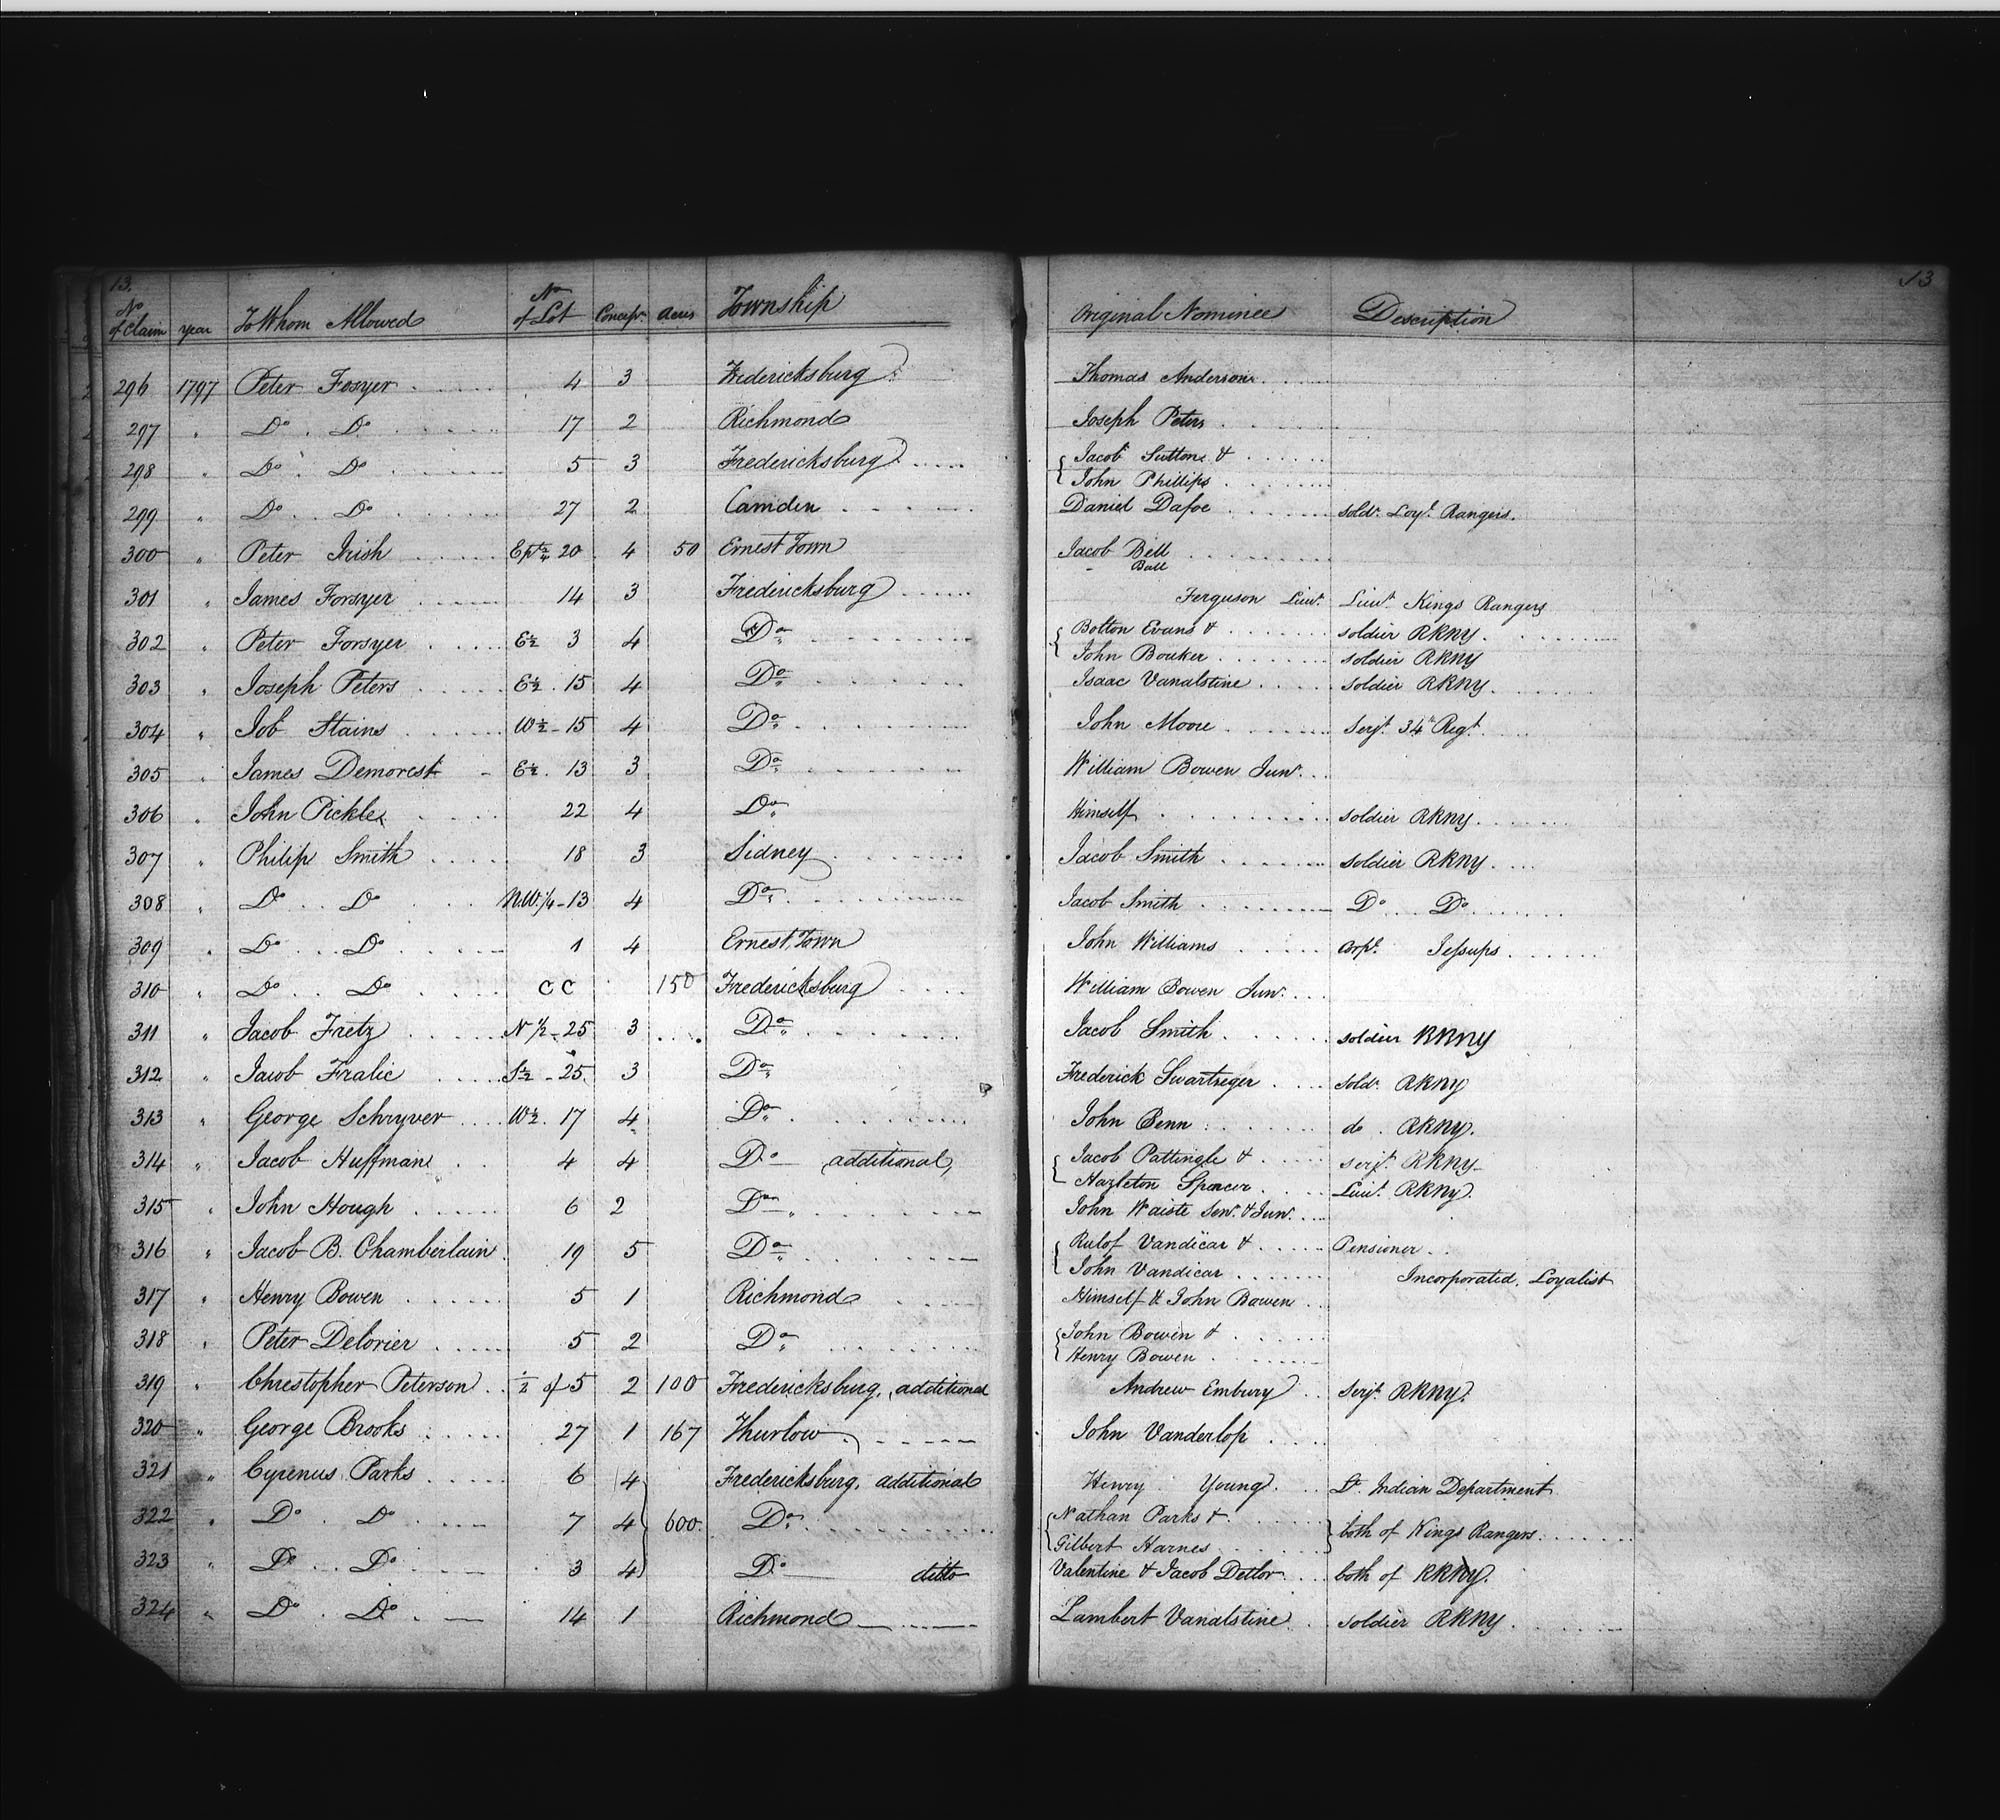 13.
No of Claim year To Whom Allowed No of Lot Concess.n Acres Township Original Nominee Description
13
296 1797 Peter Fosyer 4 3 Fredericksburg Thomas Anderson
297 " Do. Do. 17 2 Richmond Joseph Peters
298 " Do. Do. 5 3 Fredericksburg { Jacob Sutton &
John Phillips
299 " Do. Do. 27 2 Camden Daniel Dafoe sold.r Loy.l Rangers.
300 " Peter Irish Ept ½ 20 4 50 Ernest Town Jacob Bell
Ball
301 " James Forsyer 14 3 Fredericksburg Ferguson Lieu.t Lieu.t Kings Rangers
302 " Peter Forsyer E½ 3 4 Do { Bolton Evans & soldier RKNY.
John Bouker soldier RKNY
303 " Joseph Peters E½. 15 4 Do Isaac Vanalstine soldier RKNY.
304 " Job Stains W½ - 15 4 Do John Moore Serj.t 34th Reg.t
305 " James Demorest E½. 13 3 Do William Bowen Jun.r
306 " John Pickle 22 4 Do Himself soldier RKNY.
307 " Philip Smith 18 3 Sidney Jacob Smith soldier RKNY.
308 " Do. Do N.W. 1/4 - 13 4 Do Jacob Smith Do. Do.
309 " Do. Do 1 4 Ernest Town John Williams Corp.l Jessups
310 " Do. Do CC 150 Fredericksburg William Bowen Jun.r
311 " Jacob Fretz N 1/2 - 25 3 Do Jacob Smith soldier RKNY
312 " Jacob Fralic S½ - 25 3 Do Frederick Swartseger sold.r RKNY
313 " George Schryver W½. 17 4 Do John Benn do. RKNY.
314 " Jacob Huffman 4 4 Do additional { Jacob Pattingle & serj.t RKNY
Hazleton Spencer Lieu.t RKNY.
315 " John Hough 6 2 Do John Waiste Sen.r & Jun.r
316 " Jacob B. Chamberlain 19 5 Do { Rulof Vandicar & Pensioner
John Vandicar Incorporated. Loyalist
317 " Henry Bowen 5 1 Richmond Himself & John Bowen
318 " Peter Delorier 5 2 Do { John Bowen &
Henry Bowen
319 " Chrestopher Peterson ½ of 5 2 100 Fredericksburg, additional Andrew Embury Serj.t RKNY.
320 " George Brooks 27 1 167 Thurlow John Vanderlop
321 " Cyrenus Parks 6 4 Fredericksburg, additional Henry Young L.t Indian Department
322 " Do. Do 7 4 600. Do. { Nathan Parks &
Gilbert Harnes } both of Kings Rangers
323 " Do. Do 3 4 Do ditto Valentine & Jacob Detlor both of RKNY.
324 " Do. Do. 14 1 Richmond Lambert Vanalstine soldier RKNY